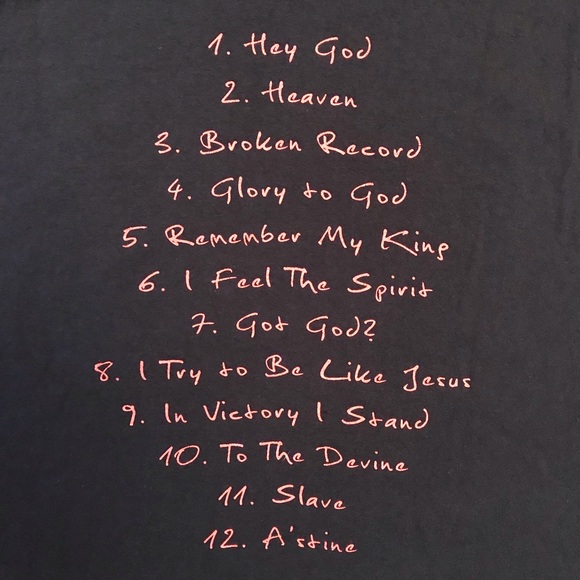 1. Hey God
2. Heaven
3. Broken Record
4. Glory to God
5. Remember My King
6. I Feel The Spirit
7. Got God?
8. I Try to Be Like Jesus
9. In Victory I Stand
10. To The Devine
11. Slave
12. A'stine